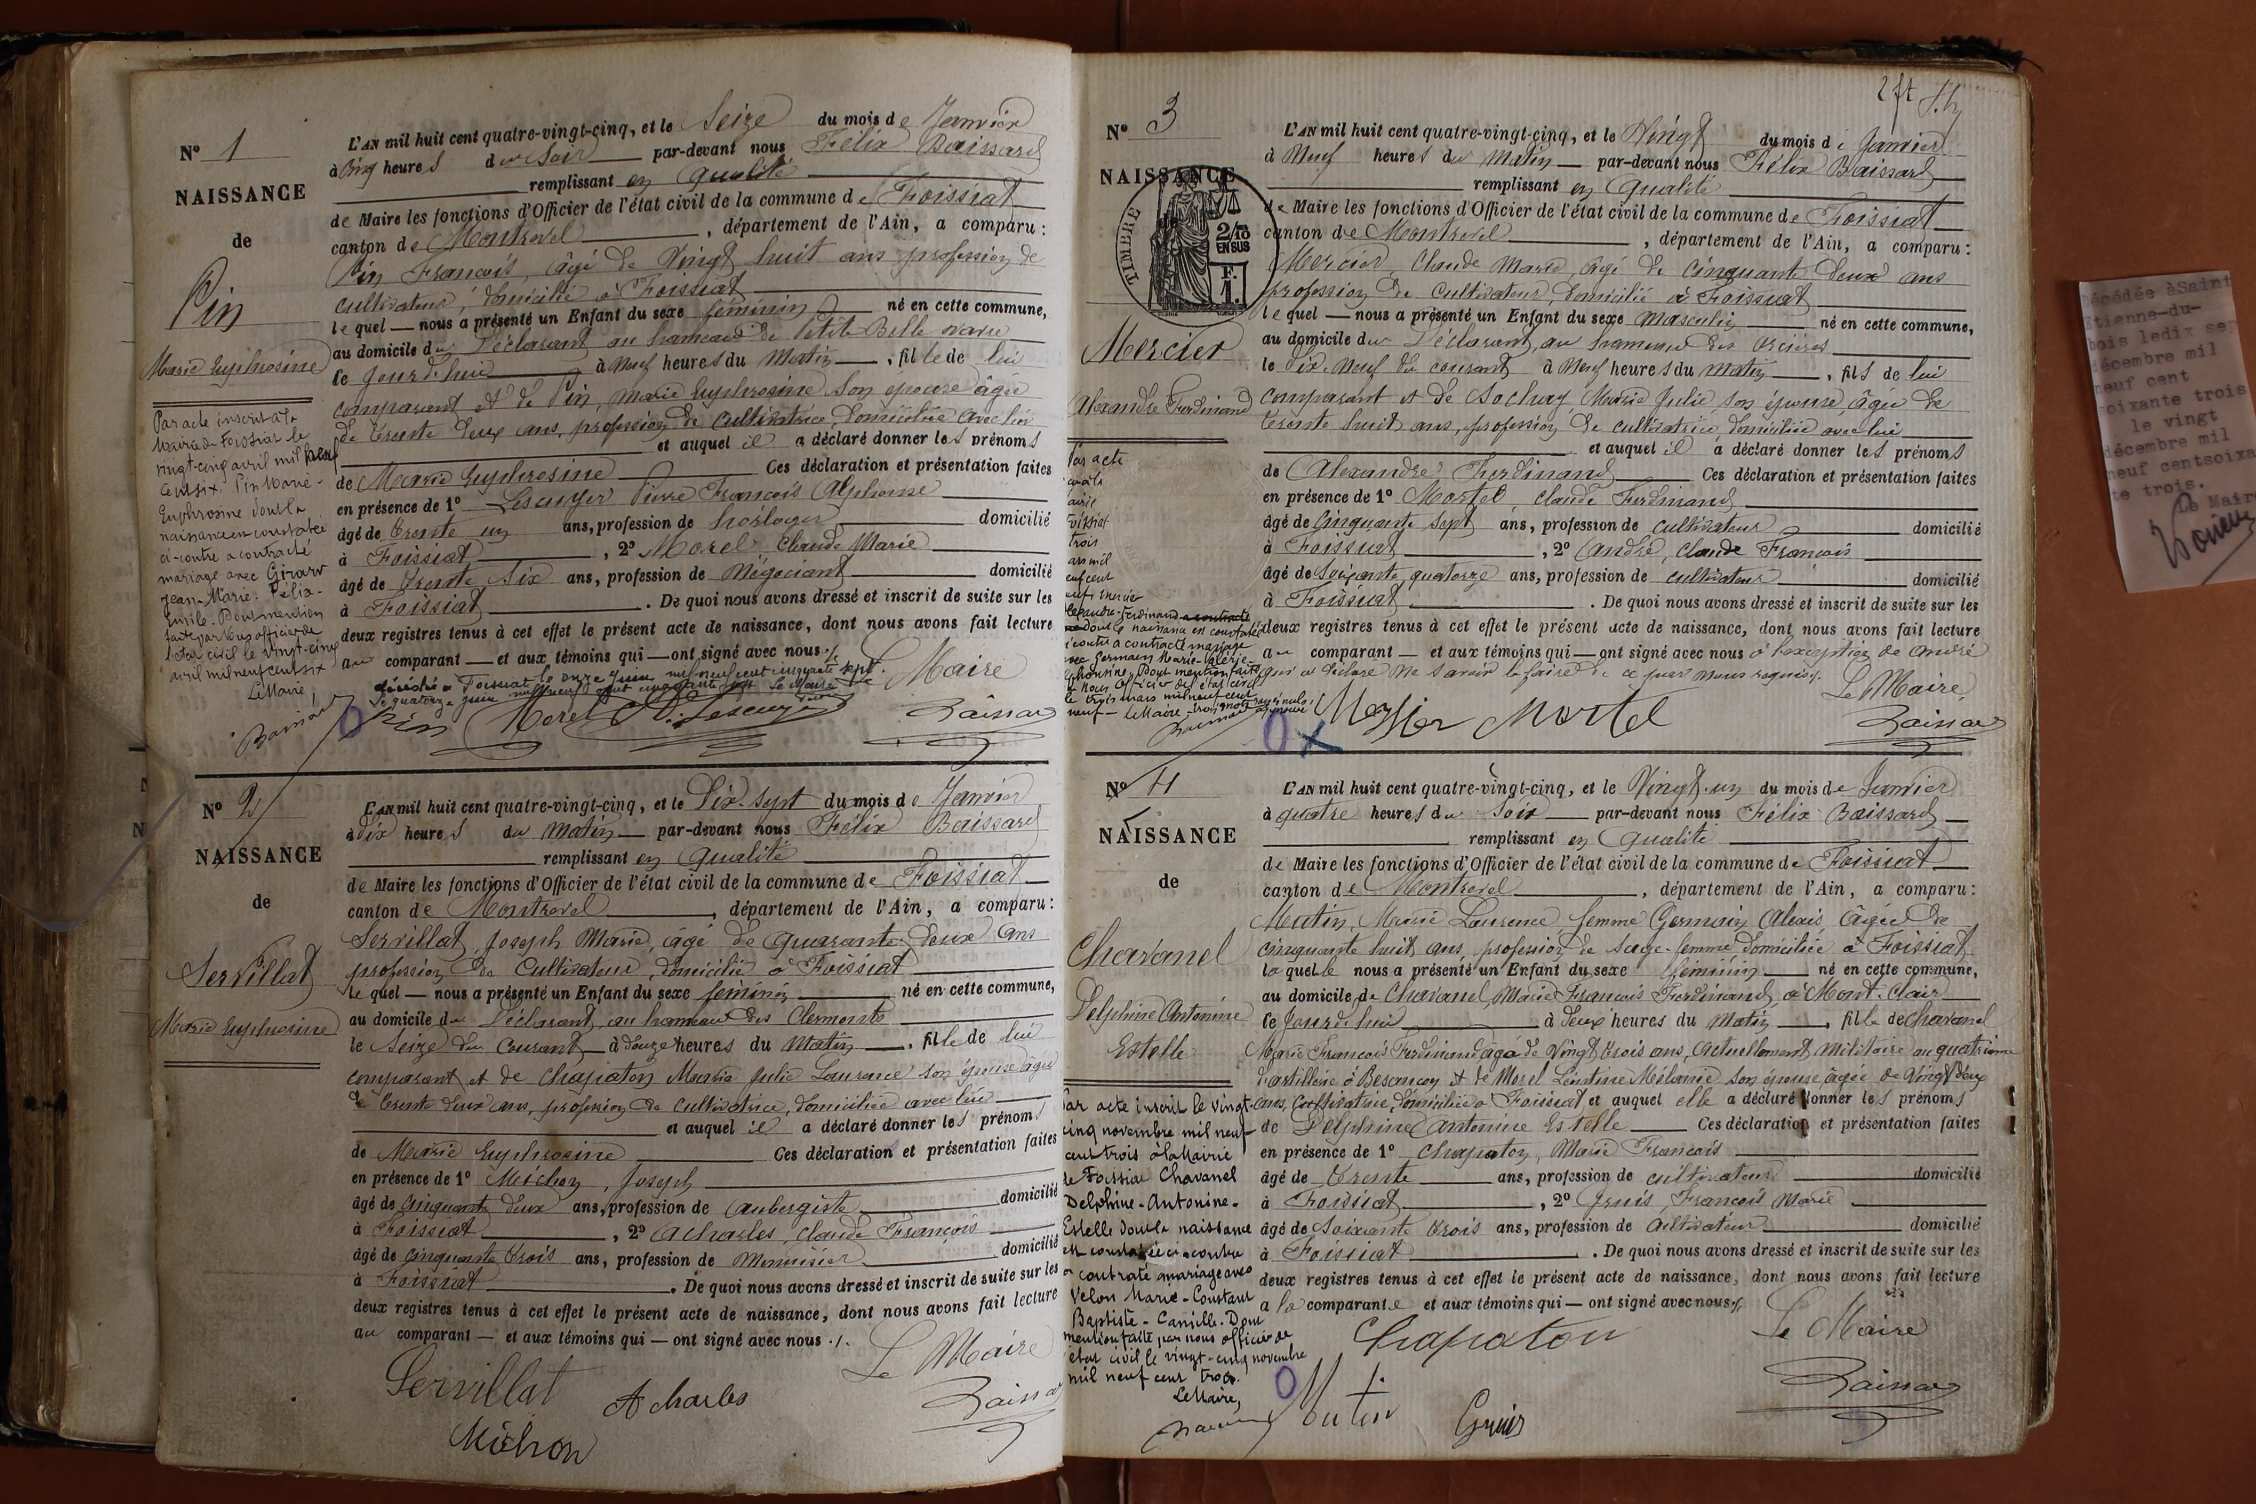 N° 1
NAISSANCE
de
Pin
Marie Euphrosine
L'AN mil huit cent quatre-vingt-cinq, et le Seize du mois de Janvier
à Cinq heures du Soir par-devant nous Félix Baissard
remplissant en qualité
de Maire les fonctions d'Officier de l'état civil de la commune de Foissiat
canton de Montrevel, département de l'Ain, a comparu :
Pin François, âgé de Vingt huit ans profession de
cultivateur, domicilié à Foissiat
le quel — nous a présenté un Enfant du sexe féminin né en cette commune,
au domicile du Déclarant au hameau de Petite Belle
le Jourd'hui à Neuf heures du Matin, fille de lui
comparant et de Pin, Marie Euphrosine son épouse âgée
de trente deux ans, profession de cultivatrice, domiciliée avec lui
et auquel il a déclaré donner les prénoms
de Marie Euphrosine Ces déclaration et présentation faites
en présence de 1° Lescuyer Pierre François Alphonse
âgé de trente un ans, profession de horloger domicilié
à Foissiat, 2° Morel Claude Marie
âgé de trente Six ans, profession de Négociant domicilié
à Foissiat. De quoi nous avons dressé et inscrit de suite sur les
deux registres tenus à cet effet le présent acte de naissance, dont nous avons fait lecture
au comparant — et aux témoins qui — ont signé avec nous ./.
Le Maire
Par acte inscrit à la
Mairie de Foissiat le
vingt-cinq avril mil neuf
cent six. Pin Marie-
Euphrosine dont la
naissance est constatée
ci-contre a contracté
mariage avec Girard
Jean-Marie-Félix-
Emile. Dont mention
faite par nous officier de
l'état civil le vingt-cinq
avril mil neuf cent six
Le Maire,
Décédée à Foissiat le onze Juin mil neuf cent cinquante sept.
Le quatorze juin mil neuf cent cinquante sept Le Maire
Pin Morel Lescuyer
N° 2
NAISSANCE
de
Servillat
Marie Euphrosine
L'AN mil huit cent quatre-vingt-cinq, et le Dix-sept du mois de Janvier
à Dix heures du Matin par-devant nous Félix Baissard
remplissant en qualité
de Maire les fonctions d'Officier de l'état civil de la commune de Foissiat
canton de Montrevel, département de l'Ain, a comparu :
Servillat, Joseph Marie, âgé de quarante-deux ans
profession de Cultivateur, domicilié à Foissiat
le quel — nous a présenté un Enfant du sexe féminin né en cette commune,
au domicile du Déclarant, au hameau des Clermonts
le Seize du courant à douze heures du Matin, fille de lui
comparant et de Chapaton Marie Julie Laurence son épouse âgée
de trente deux ans, profession de cultivatrice, domiciliée avec lui
et auquel il a déclaré donner les prénoms
de Marie Euphrosine Ces déclaration et présentation faites
en présence de 1° Michon, Joseph
âgé de cinquante deux ans, profession de aubergiste domicilié
à Foissiat, 2° Acharles, Claude François
âgé de cinquante trois ans, profession de Menuisier domicilié
à Foissiat. De quoi nous avons dressé et inscrit de suite sur les
deux registres tenus à cet effet le présent acte de naissance, dont nous avons fait lecture
au comparant — et aux témoins qui — ont signé avec nous ./.
Le Maire
Servillat Acharles
Michon
N° 3
NAISSANCE
TIMBRE
2/10
EN SUS
F.
1.
Mercier
Alexandre Ferdinand
L'AN mil huit cent quatre-vingt-cinq, et le Vingt du mois de Janvier
à Neuf heures du Matin par-devant nous Félix Baissard
remplissant en qualité
de Maire les fonctions d'Officier de l'état civil de la commune de Foissiat
canton de Montrevel, département de l'Ain, a comparu :
Mercier, Claude Marie, âgé de cinquante deux ans
profession de cultivateur, domicilié à Foissiat
le quel — nous a présenté un Enfant du sexe masculin né en cette commune,
au domicile du Déclarant, au hameau des
le Dix-Neuf du courant à Neuf heures du Matin, fils de lui
comparant et de Sochay Marie Julie, son épouse, âgée de
trente huit ans, profession de cultivatrice, domiciliée avec lui
et auquel il a déclaré donner les prénoms
de Alexandre Ferdinand Ces déclaration et présentation faites
en présence de 1° Mortel, Claude Ferdinand
âgé de cinquante sept ans, profession de cultivateur domicilié
à Foissiat, 2° André, Claude François
âgé de Soixante quatorze ans, profession de cultivateur domicilié
à Foissiat. De quoi nous avons dressé et inscrit de suite sur les
deux registres tenus à cet effet le présent acte de naissance, dont nous avons fait lecture
au comparant — et aux témoins qui — ont signé avec nous à l'exception de André
qui a déclaré ne savoir le faire de ce par nous requis ./.
Le Maire
par acte
trois
mars mil
neuf cent
neuf Mercier
Alexandre-Ferdinand a contracté
dont la naissance est constatée
ci-contre a contracté mariage
avec Germain Marie-Valérie-
Alphonsine. Dont mention faite
par Nous Officier de l'état civil
le trois mars mil neuf cent
neuf — Le Maire
Mortel
N° 4
NAISSANCE
de
Chavanel
Delphine Antonine
Estelle
L'AN mil huit cent quatre-vingt-cinq, et le Vingt-un du mois de Janvier
à quatre heures du Soir par-devant nous Félix Baissard
remplissant en qualité
de Maire les fonctions d'Officier de l'état civil de la commune de Foissiat
canton de Montrevel, département de l'Ain, a comparu :
Mutin, Marie Laurence, femme Germain Alexis, âgée de
cinquante huit ans, profession de sage-femme domiciliée à Foissiat
la quelle nous a présenté un Enfant du sexe féminin né en cette commune,
au domicile de Chavanel, Marie François Ferdinand, à Mont-Clair
le Jourd'hui à Deux heures du Matin, fille de Chavanel
Marie François Ferdinand âgé de Vingt trois ans, actuellement militaire au quatrième
d'artillerie à Besançon et de Morel Léontine Mélanie son épouse âgée de Vingt deux
ans, Cultivatrice, domiciliée à Foissiat et auquel elle a déclaré donner les prénoms
de Delphine Antonine Estelle Ces déclaration et présentation faites
en présence de 1° Chapaton, Marie François
âgé de Trente ans, profession de cultivateur domicilié
à Foissiat, 2° Gruis, François Marie
âgé de Soixante trois ans, profession de cultivateur domicilié
à Foissiat. De quoi nous avons dressé et inscrit de suite sur les
deux registres tenus à cet effet le présent acte de naissance, dont nous avons fait lecture
à la comparante et aux témoins qui — ont signé avec nous ./.
Le Maire
Par acte inscrit le vingt-
cinq novembre mil neuf
cent trois à la Mairie
de Foissiat Chavanel
Delphine-Antonine-
Estelle dont la naissance
est constatée ci-contre
a contracté mariage avec
Velon Marie-Constant
Baptiste-Camille. Dont
mention faite par nous officier de
l'état civil le vingt-cinq novembre
mil neuf cent trois.
Le Maire,
Chapaton
Mutin Gruis
Décédée à Saint
Etienne-du-
bois le dix sep
décembre mil
neuf cent
soixante trois
le vingt
décembre mil
neuf cent soixa
te trois.
Le Maire